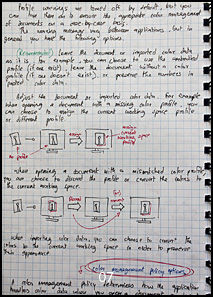 Profile warnings are turned off by default, but you
can turn them on to ensure the appropriate color management
of documents on a case-by-case basis.
The warning messages vary between applications, but in
general you have the following options:
(Recommended) Leave the document or imported color data
as it is. For example, you can choose to use the embedded
profile (if one exists), leave the document without a color
profile (if one doesn't exist), or preserve the numbers in
pasted color data.
Adjust the document or imported color data. For example
when opening a document with a missing color profile, you
can choose to assign the current working space profile
or different profile.
assign
current
working space
no profile
when opening a document with a mismatched color profile,
you can choose to discard the profile or convert the colors to
the current working space.
When importing color data, you can choose to convert the
colors to the current working space in order to preserve
their appearance.
color management policy options
A color management policy determines how the application
handles color data when you open a document